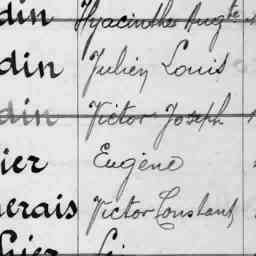 din Hyacinthe Augte
din Julien Louis
din Victor Joseph
ier Eugène
erais Victor Constant